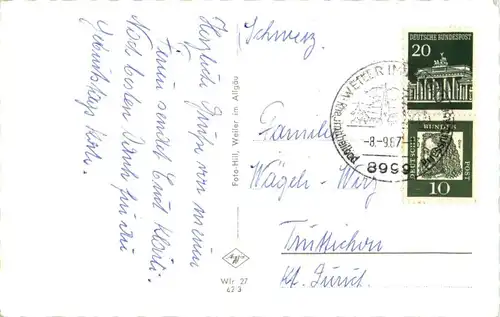 Schweiz.
Familie
Wägeli - Wirz
Truttikon
Kt. Zürich.
Herzliche Grüsse von meinen
Ferien sendet Euch Klärli.
Noch besten Dank für die
Foto-Hill, Weiler im Allgäu
Wlr 27
62 3
WEILER IM
-8.-9.67
8999
DEUTSCHE BUNDESPOST
20
DEUTSCHE
BUNDES
POST
10